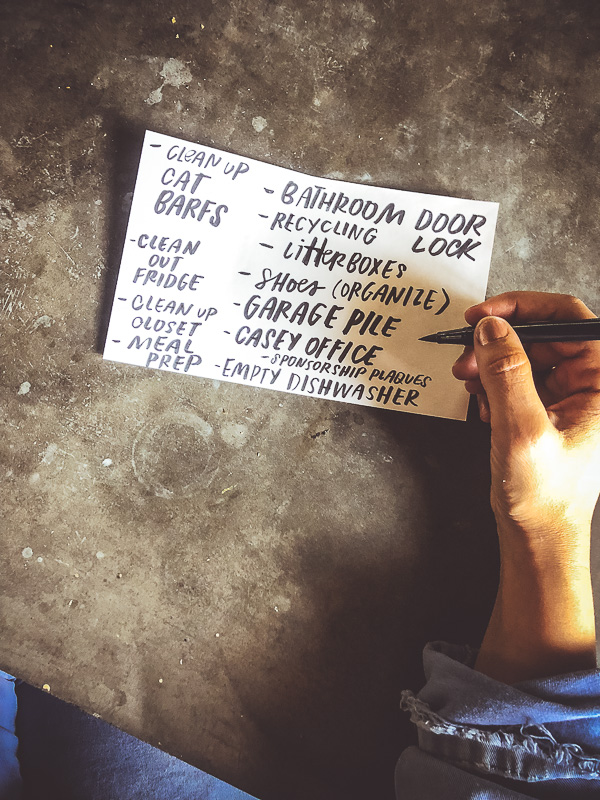 - CLEAN UP
CAT
BARFS
- CLEAN
OUT
FRIDGE
- CLEAN UP
CLOSET
- MEAL
PREP
- BATHROOM DOOR
LOCK
- RECYCLING
- LitterBOXES
- SHOES (ORGANIZE)
- GARAGE PILE
- CASEY OFFICE
- SPONSORSHIP PLAQUES
- EMPTY DISHWASHER